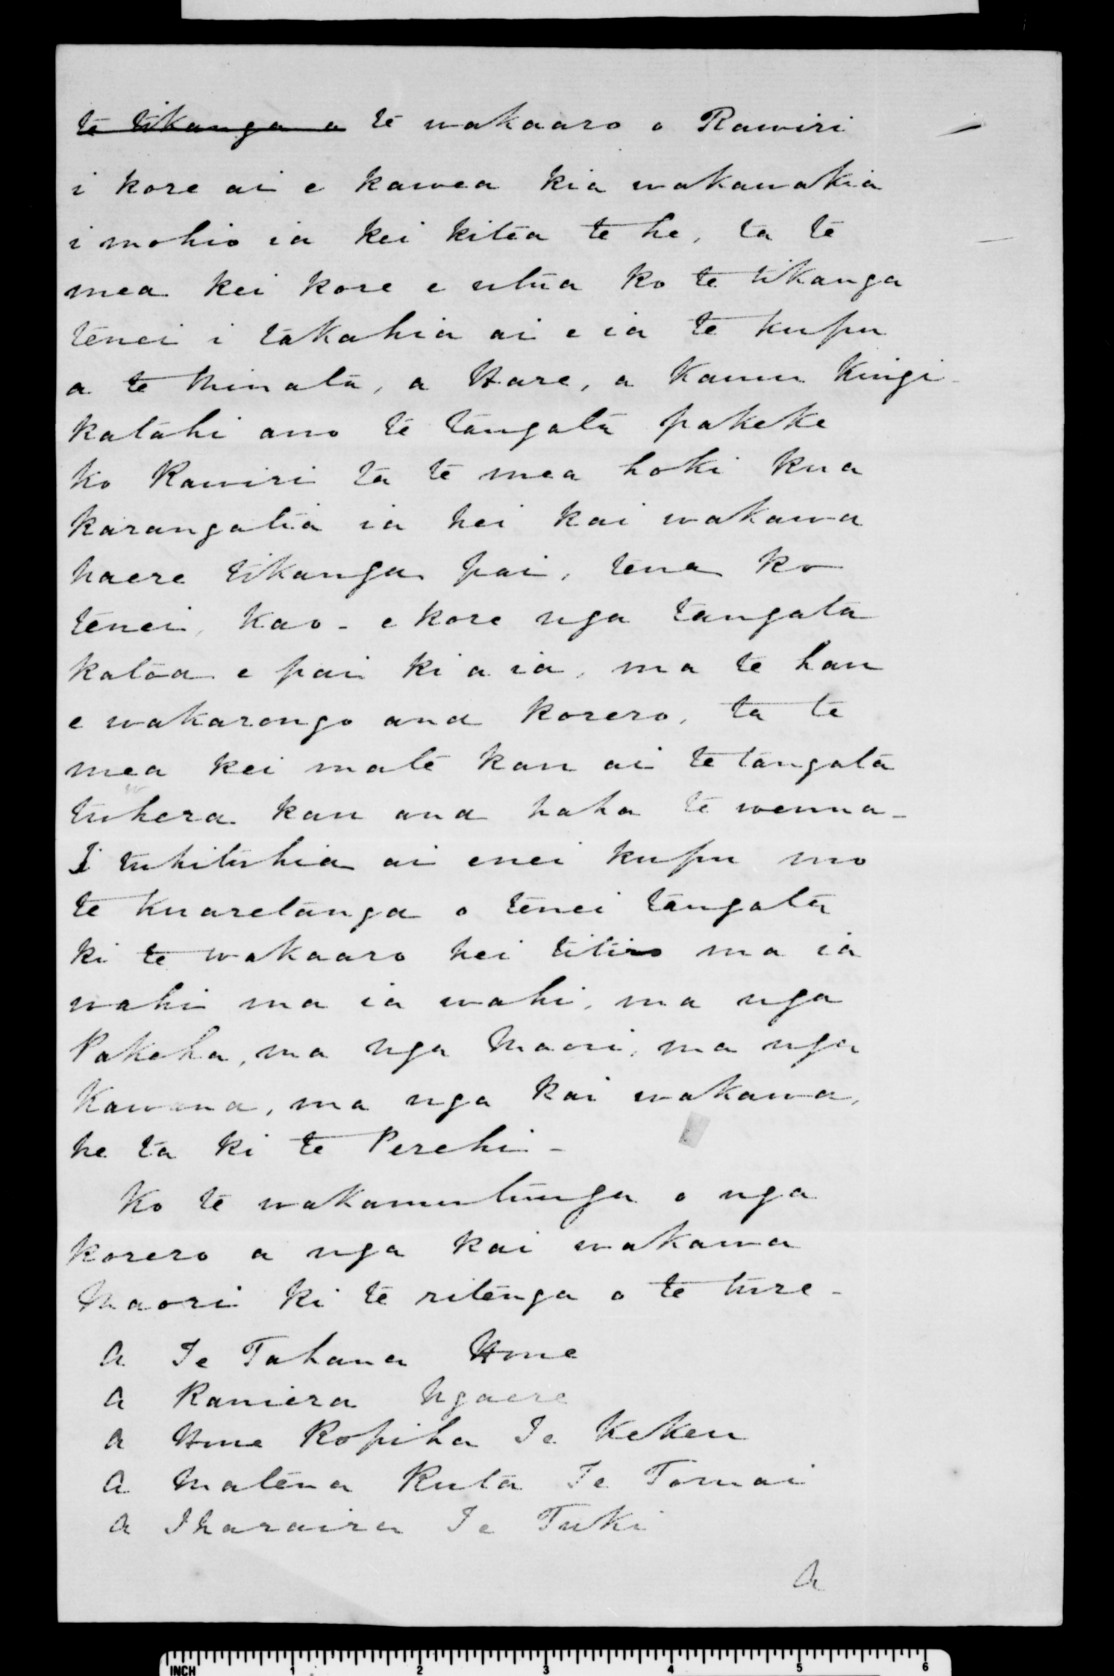 te tikanga a te wakaaro o Rawiri
i kore ai e kawea kia wakawakia
i mohio ia kei kitea te he, ta te
mea kei kore e utua ko te tikanga
tenei i takahia ai e ia te kupu
a te Minata, a Hare, a Kamu Kingi-
katahi ano te tangata pakeke
ko Rawiri ta te mea hoki kua
karangatia ia hei kai wakawa
haere tikanga pai, tena ko
tenei, Kao- e kore nga tangata
katoa e pai ki a ia, ma te hau
e wakarongo ana korero, ta te
mea kei mate kau ai te tangata
tuhera kau ana haha te wenua-
I tuhituhia ai enei kupu mo
te kuaretanga o tenei tangata
ki te wakaaro hei titiro ma ia
wahi ma ia wahi, ma nga
Pakeha, ma nga Maori, ma nga
Kawana, ma nga kai wakawa,
he ta ki te Perehi-
Ko te wakamutunga o nga
korero a nga kai wakawa
Maori ki te ritenga o te ture-
A Te Tahana Hone
A Raniera Ngaere
A Hone Ropiha Te Kekeu
A Matena Ruta Te Tomai
A Iharaira Te Tuki
A
INCH 1 2 3 4 5 6